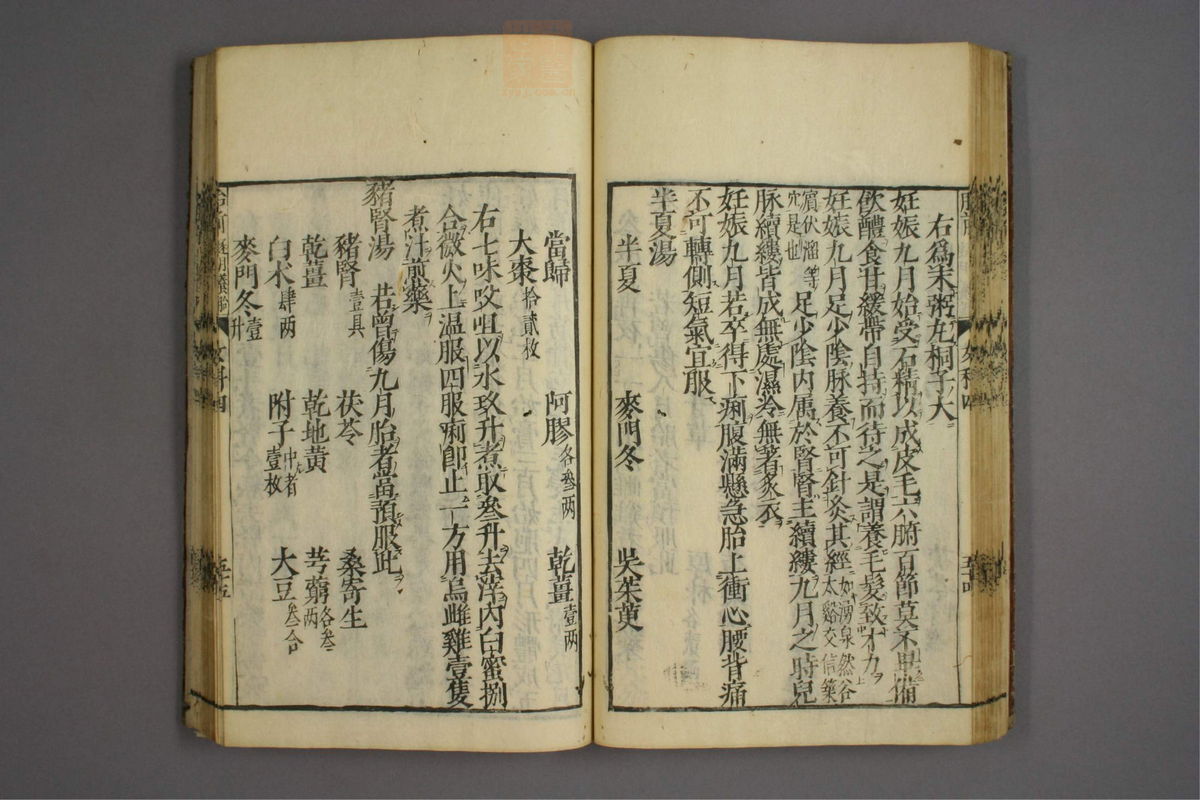 右爲末粥丸桐子大
妊娠九月始受石精以成皮毛六腑百節莫不畢備
飲醴食甘緩帶自持而待之是謂養毛髮致才力
妊娠九月足少陰脉養不可針灸其經如湧泉然谷太谿交信築
賓伏溜等穴是也 足少陰内属於腎腎主續縷九月之時兒
脉續縷皆成無處濕冷無著炙衣
妊娠九月若卒得下痢腹滿懸急胎上衝心腰背痛
不可轉側短氣宜服
半夏湯
半夏 麥門冬 吳茱萸
當歸 阿膠各叄两 乾薑壹两
大棗拾貳枚
右七味㕮咀以水玖升煮取叄升去滓内白蜜捌
合微火上温服四服痢即止一方用烏雌雞壹隻
煮汁煎藥
豬腎湯 若曾傷九月胎者當預服此
豬腎壹具 茯苓 桑寄生
乾薑 乾地黄 芎藭各叄两
白术肆两 附子中者壹枚 大豆叄合
麥門冬壹升
女科四
五十五